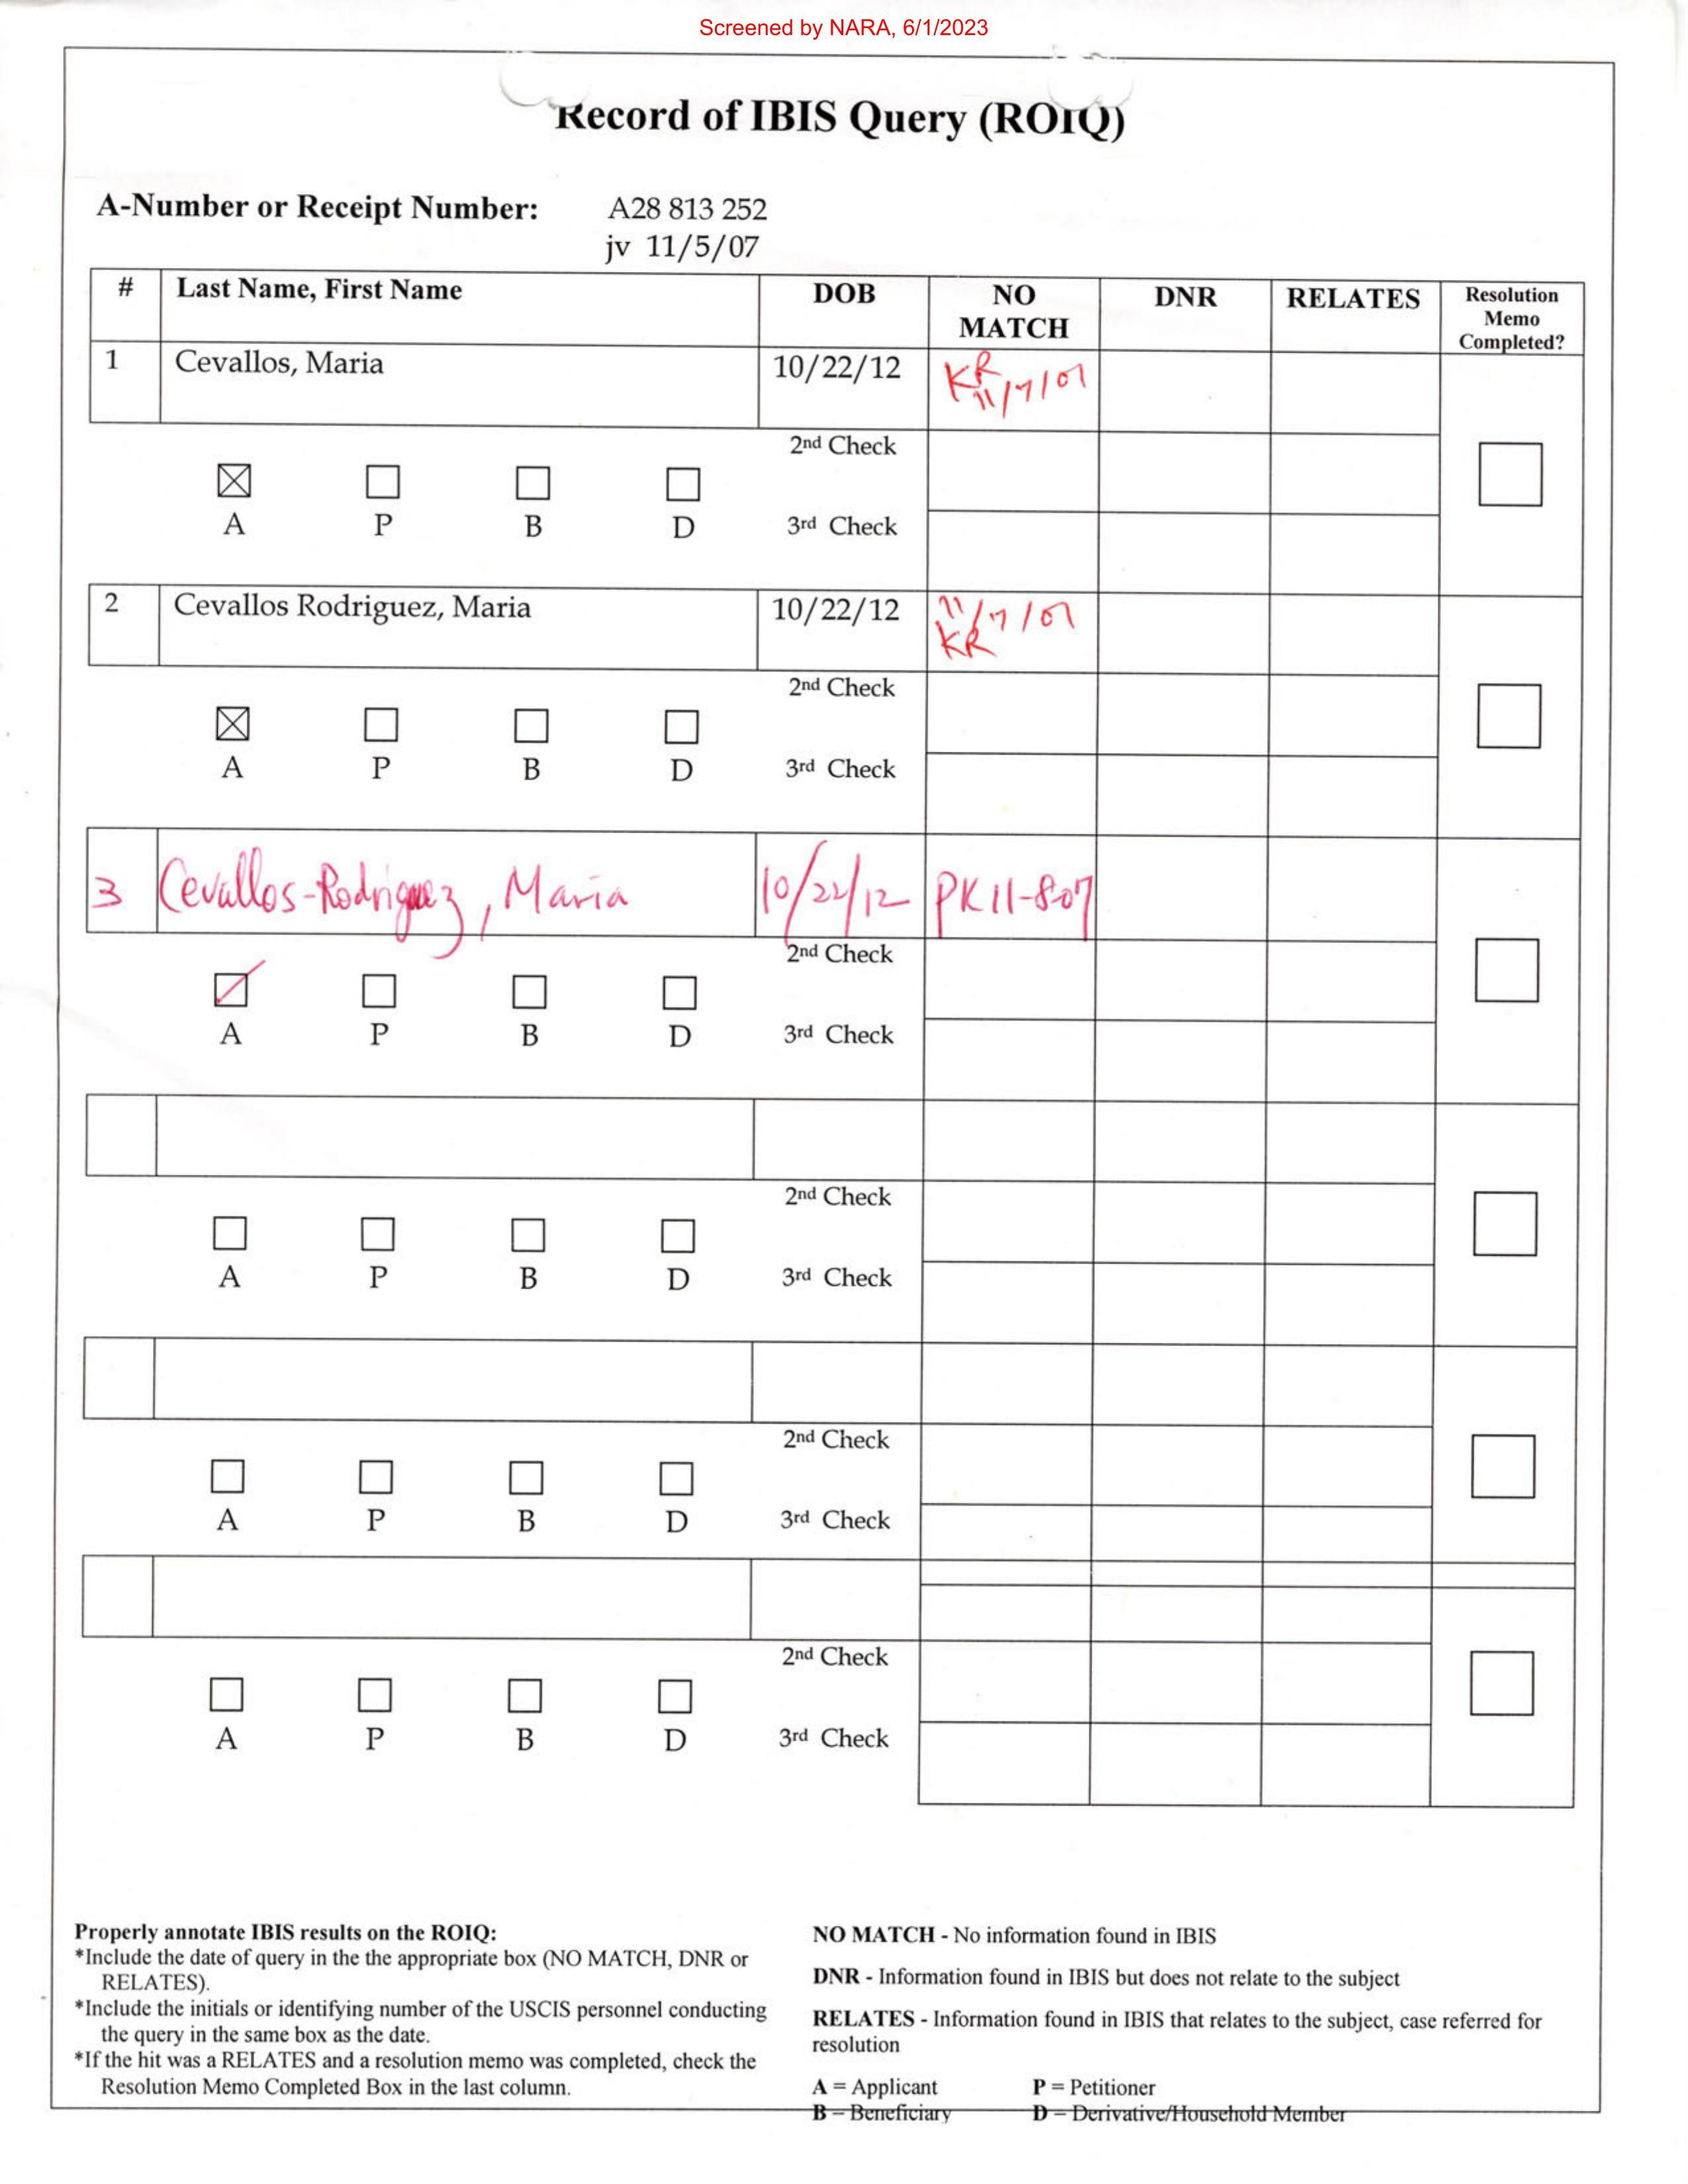 Screened by NARA, 6/1/2023
Record of IBIS Query (ROIQ)
A-Number or Receipt Number: A28 813 252
jv 11/5/07
# Last Name, First Name DOB NO MATCH DNR RELATES Resolution Memo Completed?
1 Cevallos, Maria 10/22/12 KR 11/7/07
2nd Check
A P B D 3rd Check
2 Cevallos Rodriguez, Maria 10/22/12 11/7/07 KR
2nd Check
A P B D 3rd Check
3 Cevallos-Rodriguez, Maria 10/22/12 PK 11-8-07
2nd Check
A P B D 3rd Check
2nd Check
A P B D 3rd Check
2nd Check
A P B D 3rd Check
2nd Check
A P B D 3rd Check
Properly annotate IBIS results on the ROIQ:
*Include the date of query in the the appropriate box (NO MATCH, DNR or
RELATES).
*Include the initials or identifying number of the USCIS personnel conducting
the query in the same box as the date.
*If the hit was a RELATES and a resolution memo was completed, check the
Resolution Memo Completed Box in the last column.
NO MATCH - No information found in IBIS
DNR - Information found in IBIS but does not relate to the subject
RELATES - Information found in IBIS that relates to the subject, case referred for
resolution
A = Applicant P = Petitioner
B = Beneficiary D = Derivative/Household Member